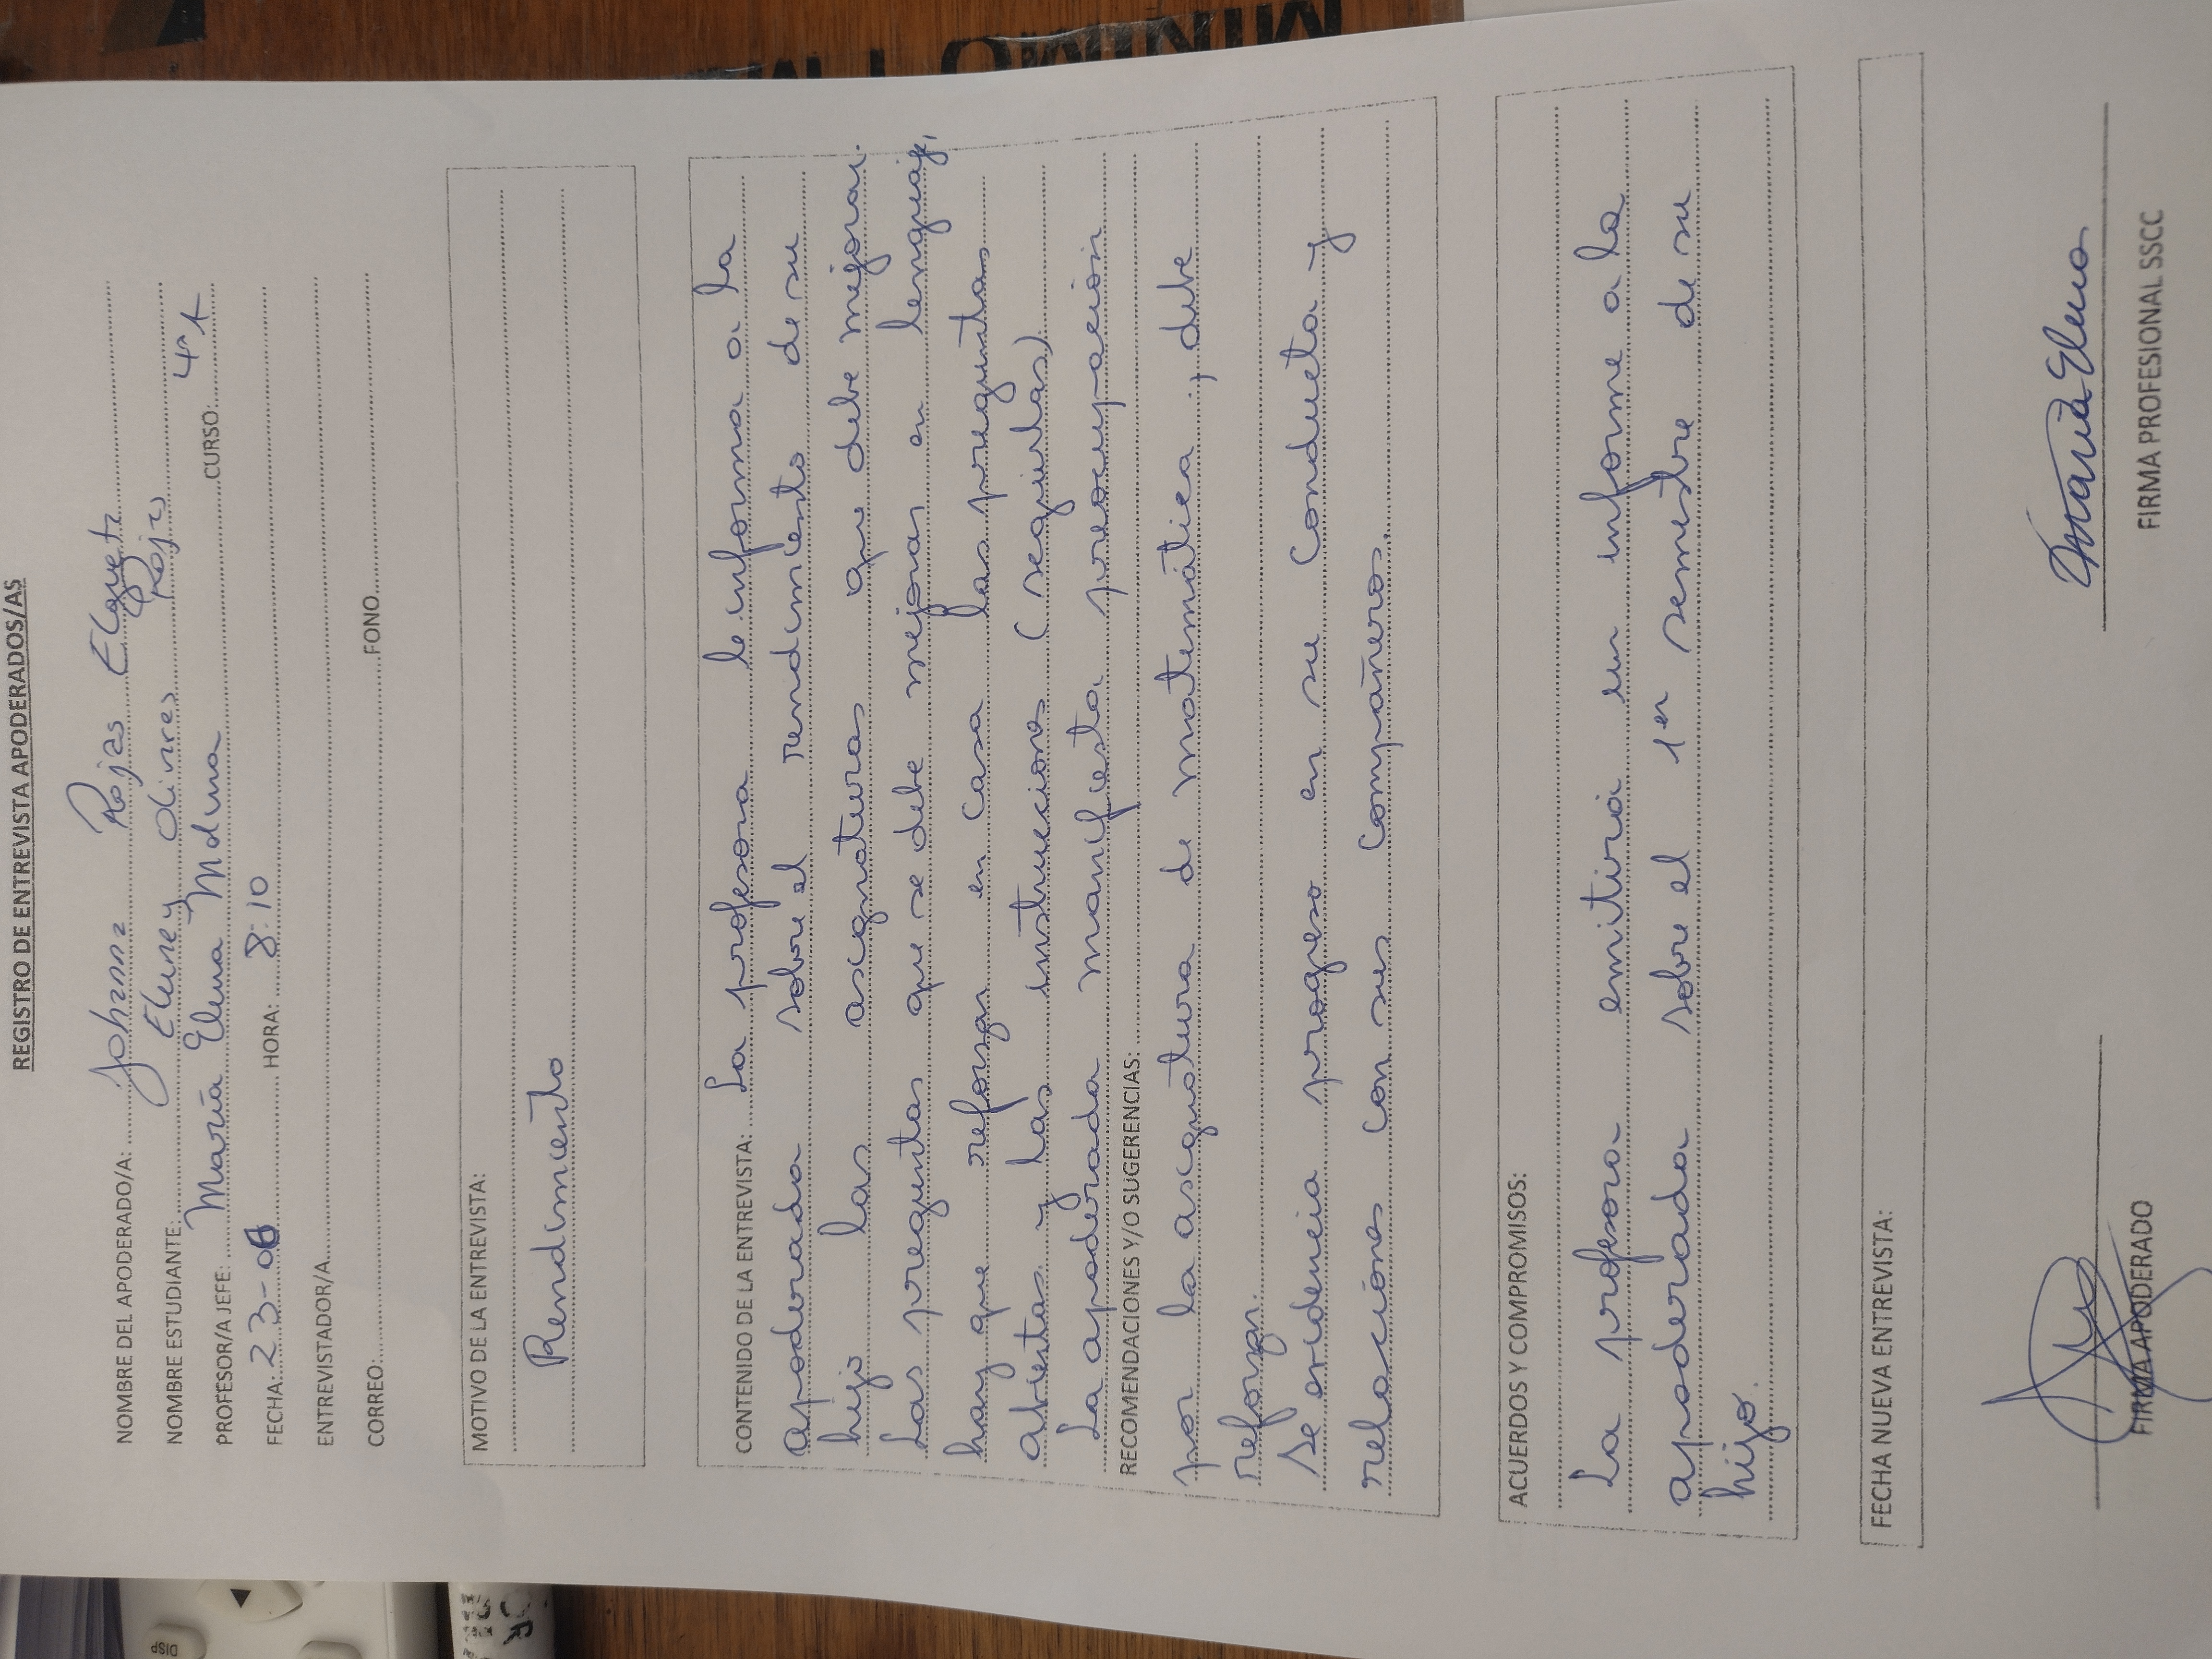 REGISTRO DE ENTREVISTA APODERADOS/AS
NOMBRE DEL APODERADO/A: Johanna Rojas
NOMBRE ESTUDIANTE: Olivares Rojas
PROFESOR/A JEFE: María Elena Molina CURSO: 4°A
FECHA: 23-06 HORA: 8:10
ENTREVISTADOR/A
CORREO: FONO
MOTIVO DE LA ENTREVISTA:
Rendimiento
CONTENIDO DE LA ENTREVISTA: La profesora le informa a la
apoderada sobre el rendimiento de su
hijo las asignaturas que debe mejorar.
Las preguntas que se debe mejorar en lenguaje,
hay que reforzar en casa las preguntas
abiertas y las instrucciones (seguirlas)
La apoderada manifiesta preocupación
RECOMENDACIONES Y/O SUGERENCIAS:
por la asignatura de matemática, debe
reforzar.
Se evidencia progreso en su conducta y
relaciones con sus compañeros.
ACUERDOS Y COMPROMISOS:
La profesora emitirá un informe a la
apoderada sobre el 1er semestre de su
hijo.
FECHA NUEVA ENTREVISTA:
María Elena
FIRMA APODERADO FIRMA PROFESIONAL SSCC
DISP